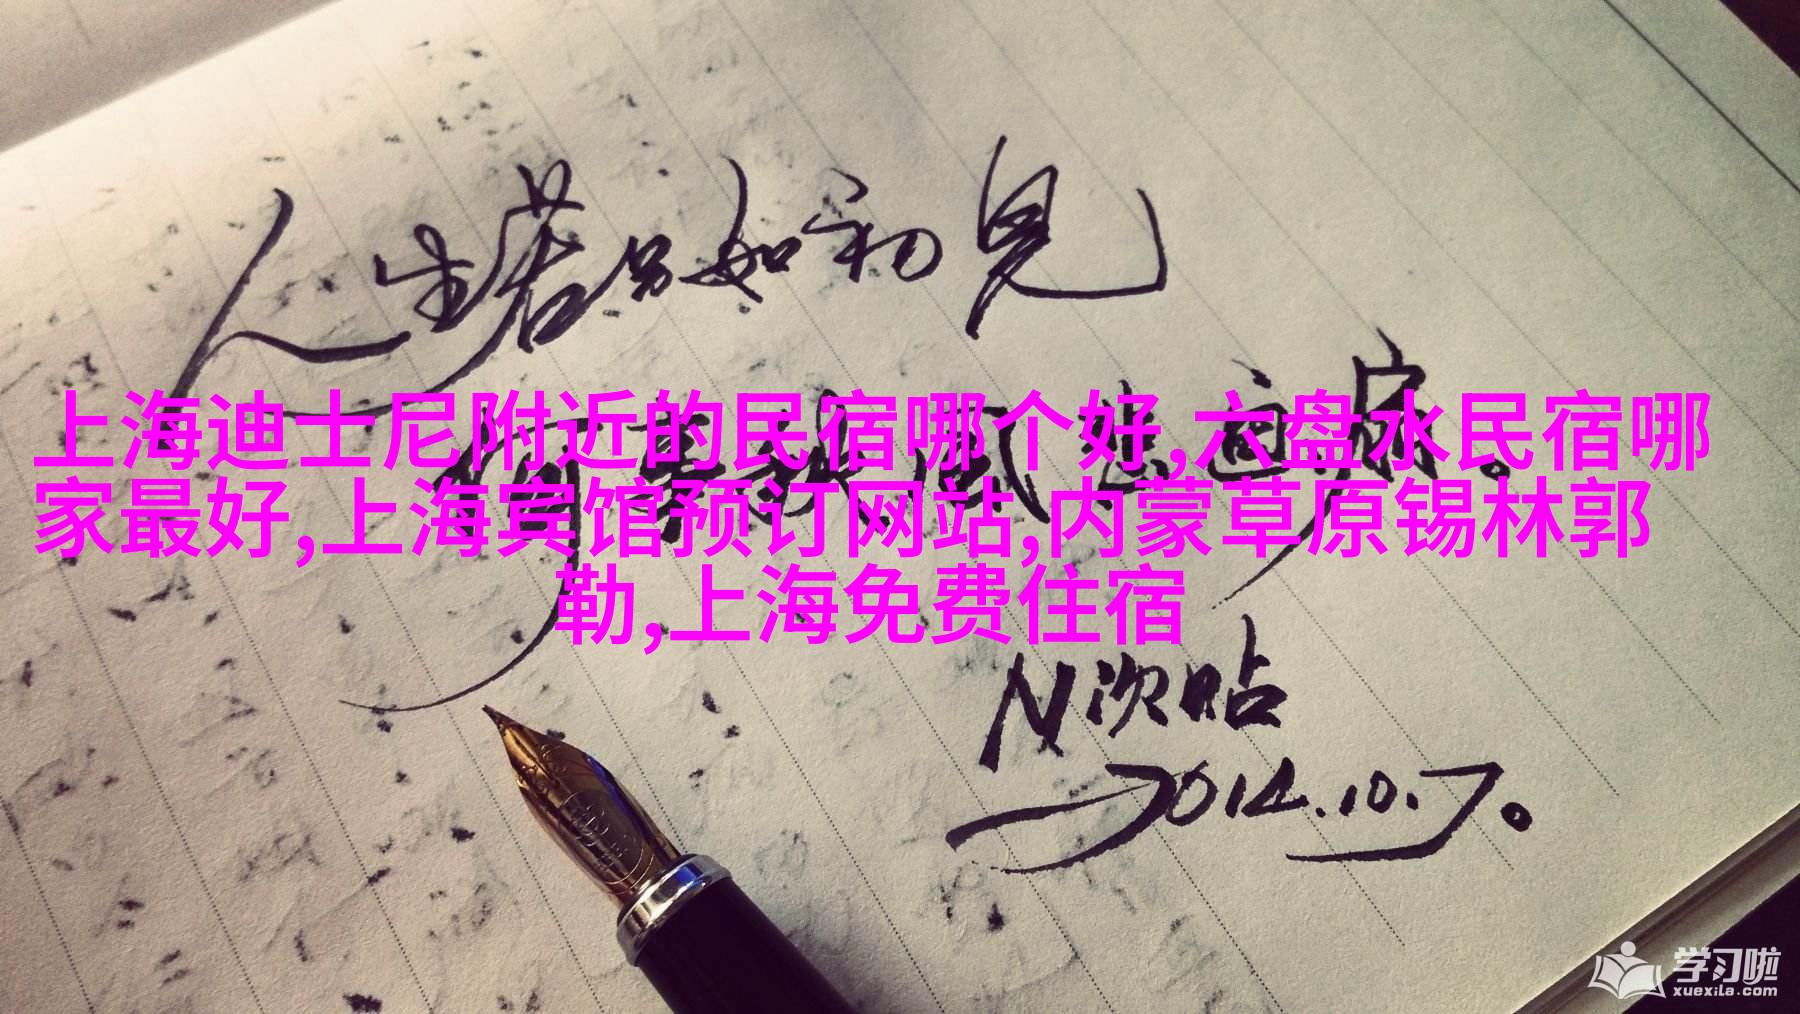 人生若只如初见
何事秋风悲画扇。
上海迪士尼附近的民宿哪个好,六盘水民宿哪
家最好,上海宾馆预订网站,内蒙草原锡林郭
勒,上海免费住宿
N次贴
2014.10.7。
学习啦
xuexila.com